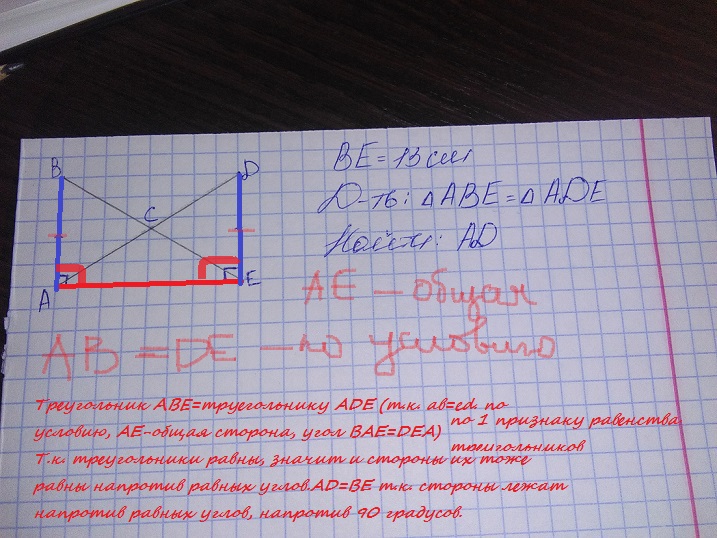 B
D
C
A
E
BE = 13 см
Д-ть: △ABE = △ADE
Найти: AD
AE – общая
AB = DE – по условию
Треугольник ABE=труегольнику ADE (т.к. ab=ed. по
условию, AE-общая сторона, угол BAE=DEA) по 1 признаку равенства
треугольников
Т.к. треугольники равны, значит и стороны их тоже
равны напротив равных углов.AD=BE т.к. стороны лежат
напротив равных углов, напротив 90 градусов.